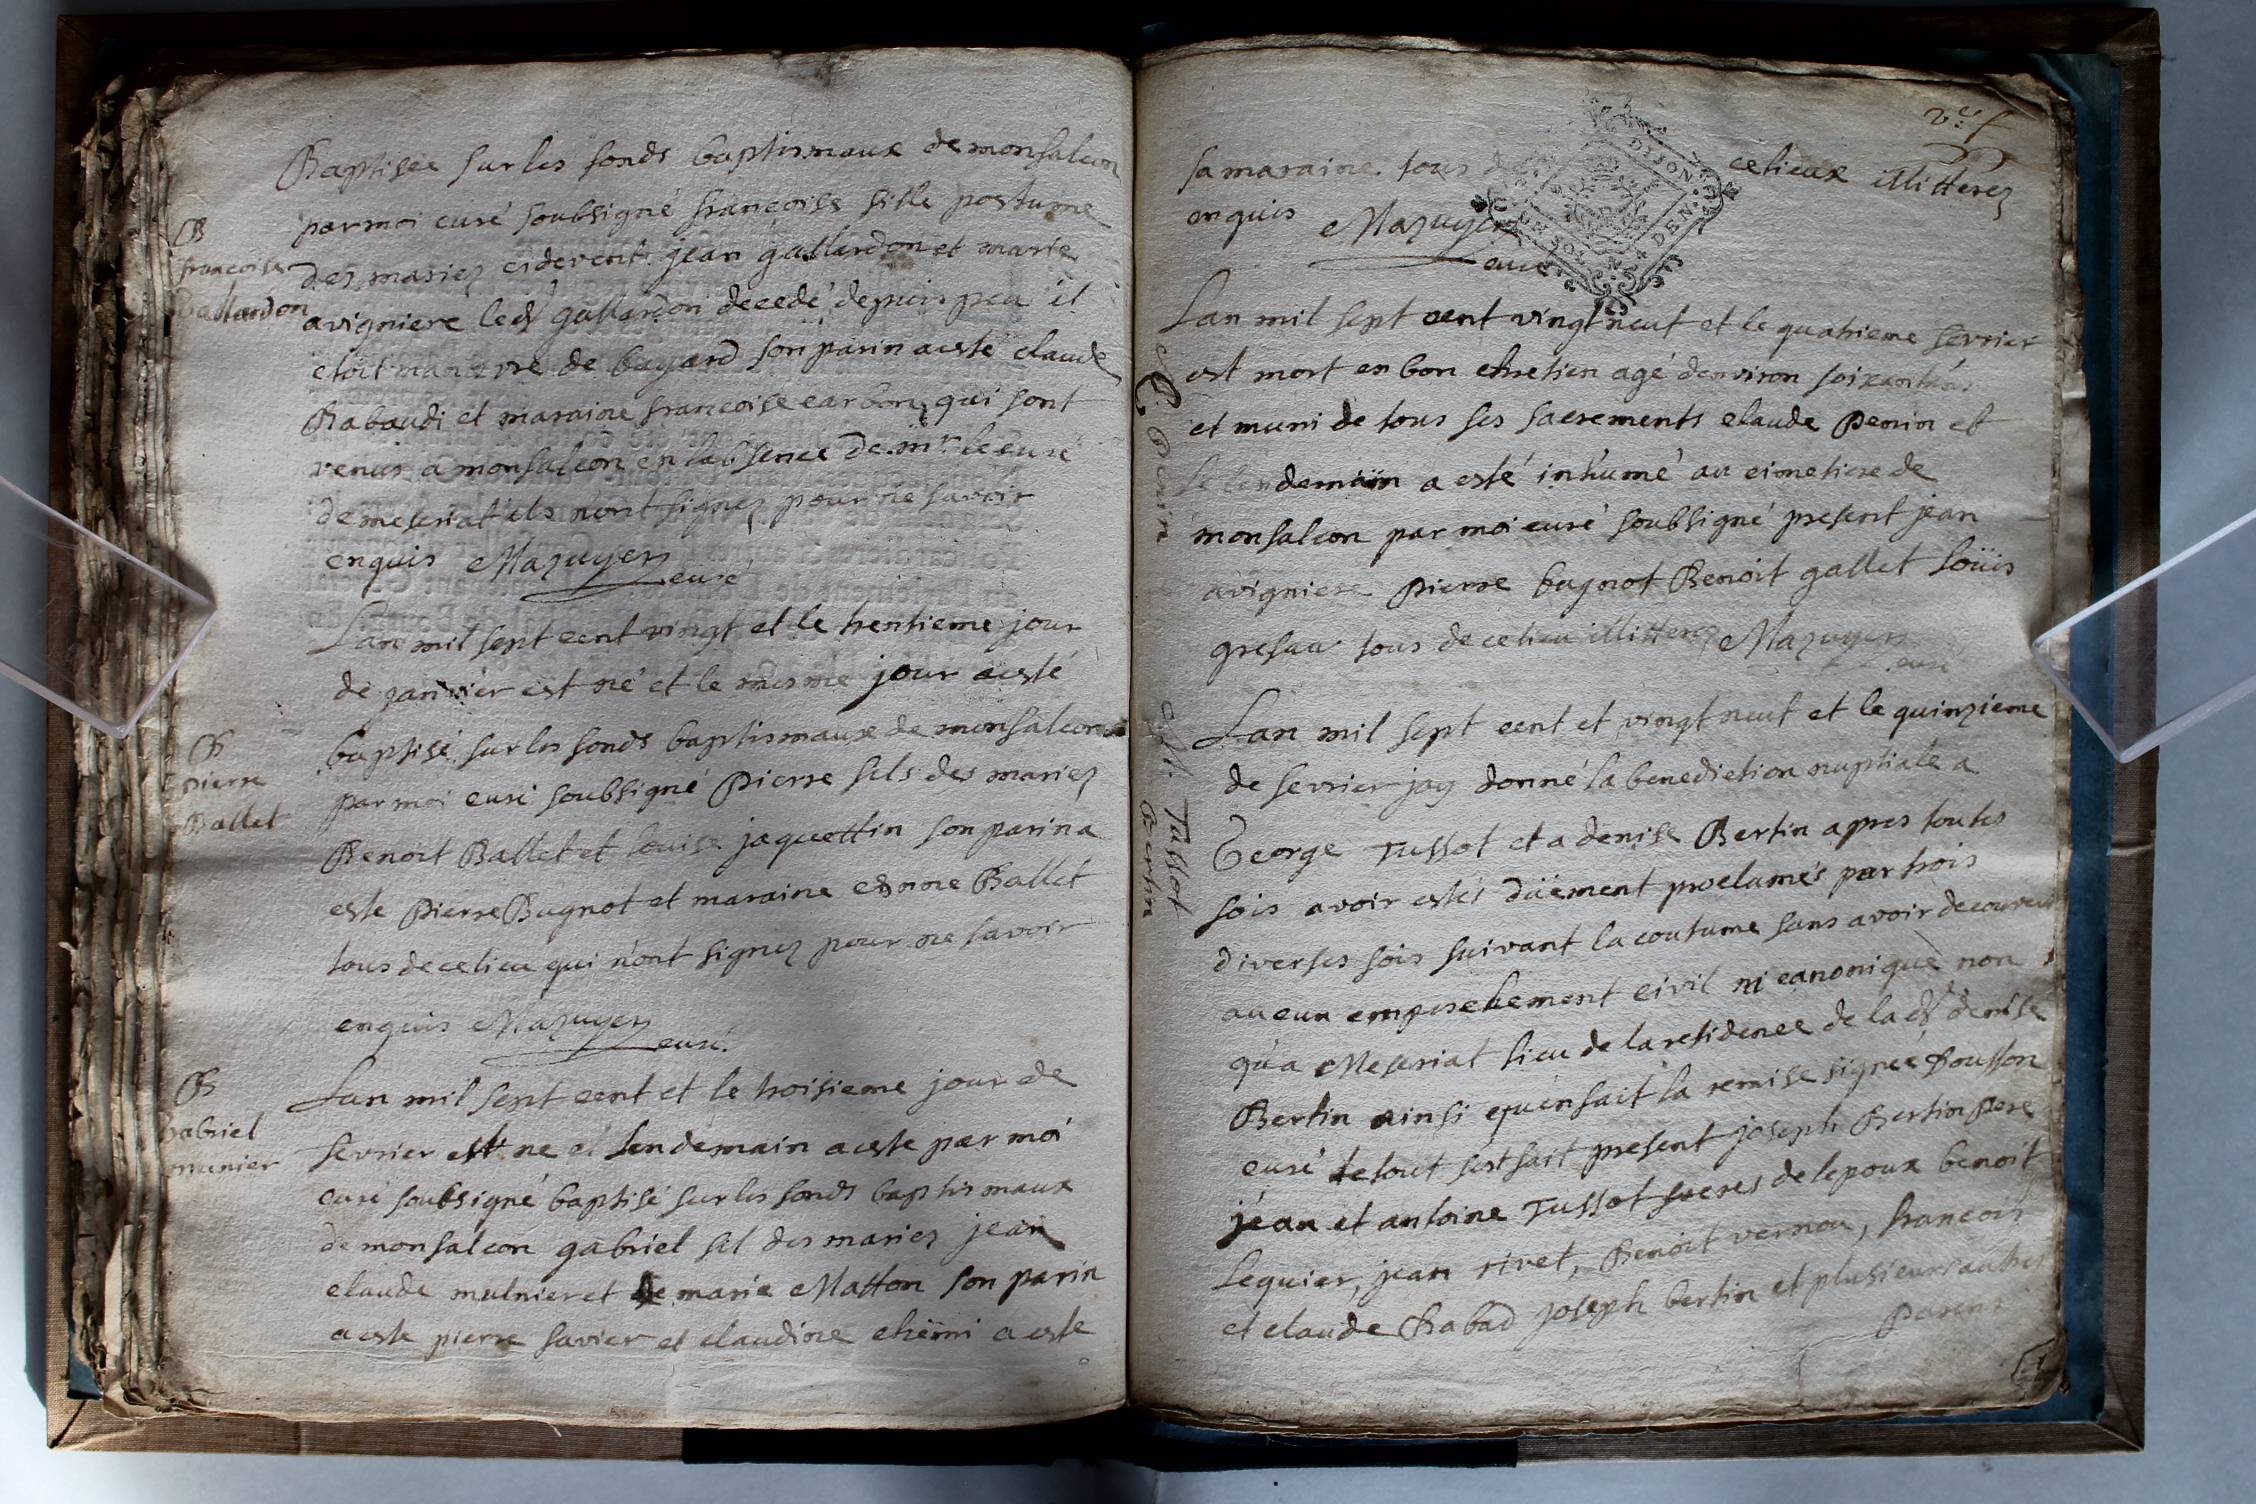 Baptisée sur les fonds baptismaux de monfalcon
B
francoise
Gallardon
par moi curé soubsigné francoise fille postume
des mariez cidevent jean gallardon et marie
avigniere led gallardon decedé depuis peu il
etoit manevre de bayard son parin a esté claude
Rabaudi et maraine francoise carbon qui sont
venus a monfalcon en labsence de mr le curé
de meseriat ils n'ont signez pour ne savoir
enquis Mazuyer
curé
Lan mil sept cent vingt et le trentieme jour
de janvier est né et le mesme jour a esté
B
pierre
Ballet
baptisé sur les fonds baptismaux de monfalcon
par moi curé soubsigné Pierre fils des mariez
Benoit Ballet et louise jaquettin son parin a
este Pierre Bugnot et maraine Ballet
tous de ce lieu qui n'ont signez pour ne savoir
enquis Mazuyer
curé
B
gabriel
munier
Lan mil sept cent et le troisieme jour de
fevrier est ne et lendemain a este par moi
curé soubsigné baptisé sur les fonds baptismaux
de monfalcon gabriel fil des mariez jean
claude mulnier et de marie Matton son parin
a este pierre favier et claudine a este
sa maraine tous de ce lieux illitterez
enquis Mazuyer
curé
DIJON
UN SOL
DEN
C. Penin
Lan mil sept cent vingt neuf et le quatrieme fevrier
est mort en bon chretien agé denviron soixant ans
et muni de tous ses sacrements claude Penin et
le lendemain a esté inhumé au cimetiere de
monfalcon par moi curé soubsigné present jean
avigniere Pierre bugnot Benoit gallet loüis
grefau tous de ce lieu illitterez Mazuyer
curé
Tussot
Bertin
Lan mil sept cent et vingt neuf et le quinzieme
de fevrier jay donné la benediction nuptiale a
George Tussot et a denise Bertin apres toutes
fois avoir estés düement proclamés par trois
diverses fois suivant la coutume sans avoir decouvert
aucun empeschement civil ni canonique non
qu'a Meseriat lieu de la residence de la d denise
Bertin ainsi qu'en fait la remise signée Pousson
curé le tout sest fait present joseph Bertin pere
jean et antoine Tussot freres de lepoux benoit
Lequier, jean rivet, Benoit vernou, francois
et claude Rabad joseph bertin et plusieurs autres
Parens